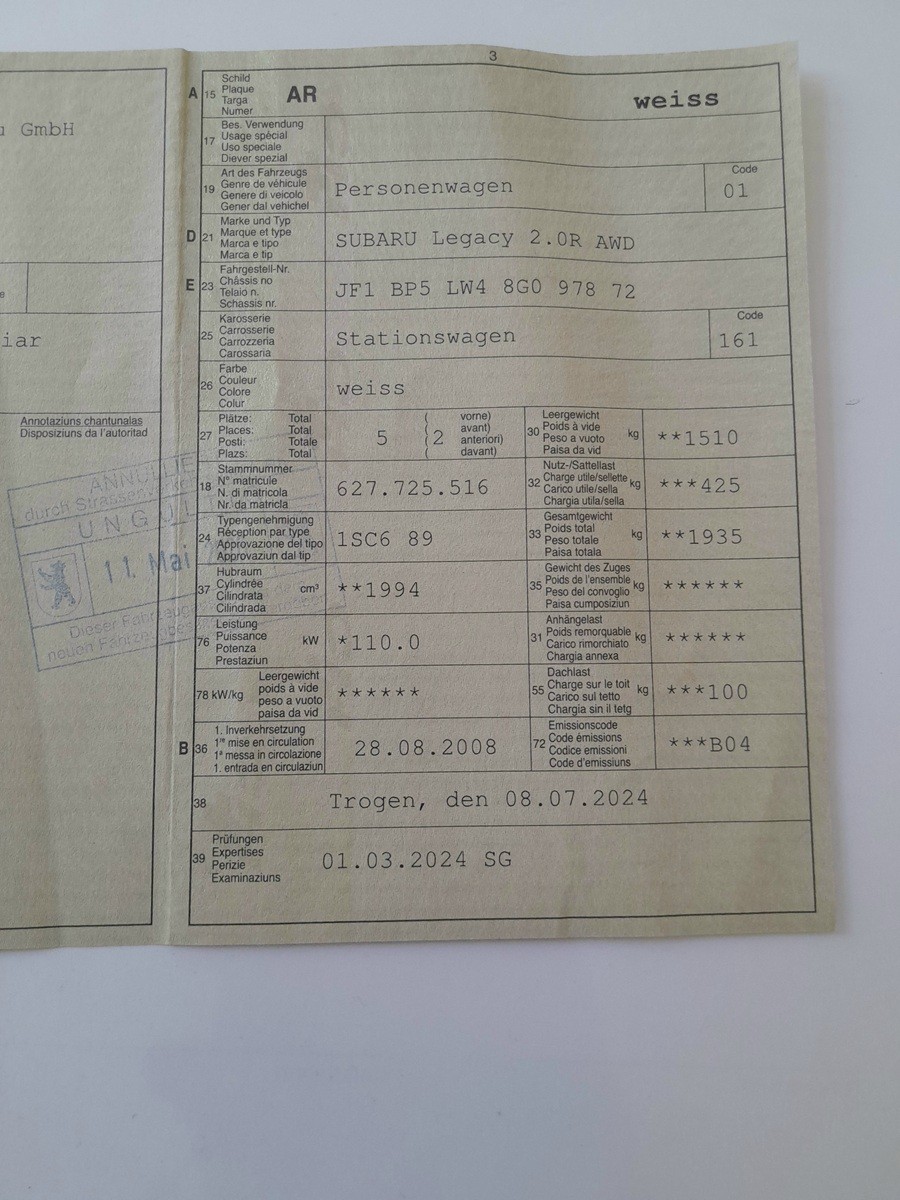 3
GmbH
iar
Annotaziuns chantunalas
Disposiziuns da l'autoritad
ANNULLIE
durch Strassenv
UNGÜL
11. Mai
Dieser Fahrzeug
neuen Fahrze
A 15 Schild AR weiss
Plaque
Targa
Numer
17 Bes. Verwendung
Usage spécial
Uso speciale
Diever spezial
19 Art des Fahrzeugs Personenwagen Code 01
Genre de véhicule
Genere di veicolo
Gener dal vehichel
D 21 Marke und Typ SUBARU Legacy 2.0R AWD
Marque et type
Marca e tipo
Marca e tip
E 23 Fahrgestell-Nr. JF1 BP5 LW4 8G0 978 72
Châssis no
Telaio n.
Schassis nr.
25 Karosserie Stationswagen Code 161
Carrosserie
Carrozzeria
Carossaria
26 Farbe weiss
Couleur
Colore
Colur
27 Plätze: Total 5 (2 vorne)
Places: Total avant)
Posti: Totale anteriori)
Plazs: Total davant)
30 Leergewicht kg **1510
Poids à vide
Peso a vuoto
Paisa da vid
18 Stammnummer 627.725.516
N° matricule
N. di matricola
Nr. da matricla
32 Nutz-/Sattellast kg ***425
Charge utile/sellette
Carico utile/sella
Chargia utila/sella
24 Typengenehmigung 1SC6 89
Réception par type
Approvazione del tipo
Approvaziun dal tip
33 Gesamtgewicht kg **1935
Poids total
Peso totale
Paisa totala
37 Hubraum cm³ **1994
Cylindrée
Cilindrata
Cilindrada
35 Gewicht des Zuges kg ******
Poids de l'ensemble
Peso del convoglio
Paisa cumposiziun
76 Leistung kW *110.0
Puissance
Potenza
Prestaziun
31 Anhängelast kg ******
Poids remorquable
Carico rimorchiato
Chargia annexa
78 kW/kg Leergewicht ******
poids à vide
peso a vuoto
paisa da vid
55 Dachlast kg ***100
Charge sur le toit
Carico sul tetto
Chargia sin il tetg
B 36 1. Inverkehrsetzung 28.08.2008
1re mise en circulation
1ª messa in circolazione
1. entrada en circulaziun
72 Emissionscode ***B04
Code émissions
Codice emissioni
Code d'emissiuns
38 Trogen, den 08.07.2024
39 Prüfungen 01.03.2024 SG
Expertises
Perizie
Examinaziuns